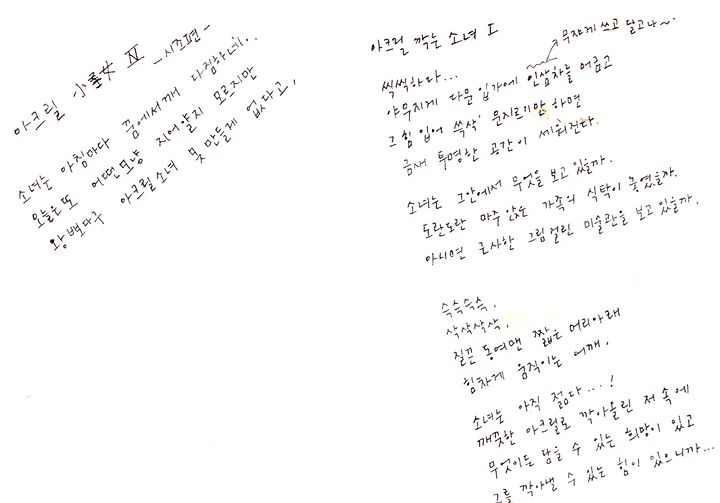 아크릴 小女 Ⅳ -시조편-
소녀는 아침마다 꿈에서깨 다짐하네..
오늘은또 어떤모냥 지어얄지 모르지만
왕뼈다구 아크릴소녀 못만들게 없다고,
아크릴 깎는 소녀 Ⅰ
무쟈게 쓰고 달고나~.
씩씩하다...
야무지게 다문 입가에 인삼차를 머금고
그 힘 입어 쓱삭' 문지르기만 하면
금새 투명한 공간이 세워진다.
소녀는 그안에서 무엇을 보고 있을까.
도란도란 마주 앉은 가족의 식탁이 놓였을까.
아니면 근사한 그림 걸린 미술관을 보고 있을까.
슥슥슥슥.
삭삭삭삭.
질끈 동여맨 짧은 머리아래
힘차게 움직이는 어깨.
소녀는 아직 젊다...!
깨끗한 아크릴로 깍아올린 저 속에
무엇이든 담을 수 있는 희망이 있고
그를 깍아낼 수 있는 힘이 있으니까...